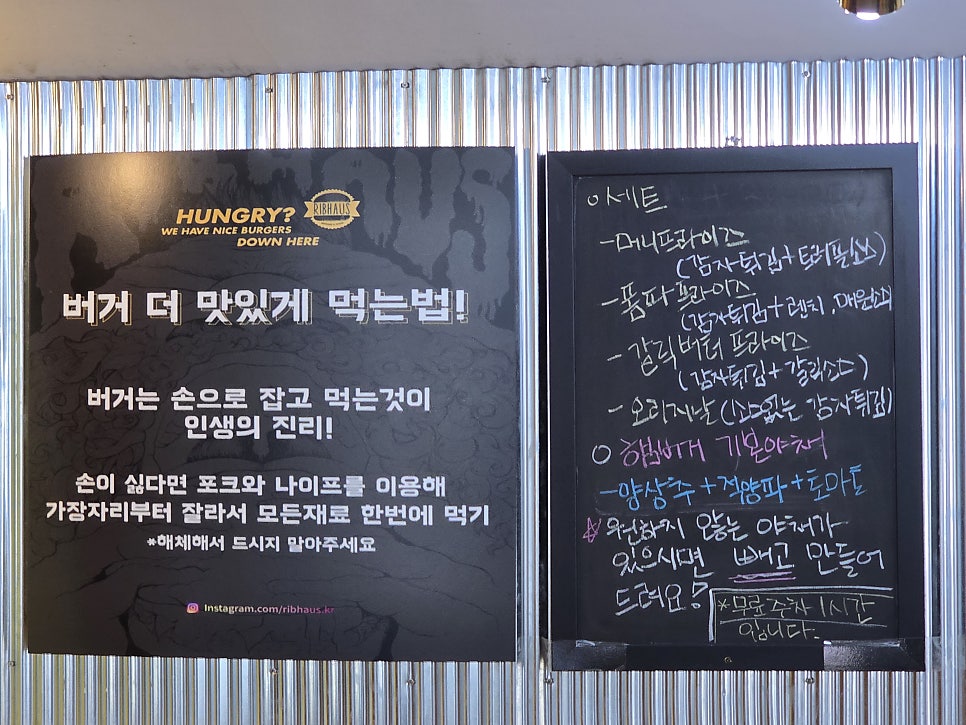 HUNGRY?
WE HAVE NICE BURGERS
DOWN HERE
RIBHAUS
버거 더 맛있게 먹는법!
버거는 손으로 잡고 먹는것이
인생의 진리!
손이 싫다면 포크와 나이프를 이용해
가장자리부터 잘라서 모든재료 한번에 먹기
*해체해서 드시지 말아주세요
Instagram.com/ribhaus.kr
○ 세트
- 머니프라이즈
(감자튀김 + 트러플소스)
- 폼파프라이즈
(감자튀김 + 렌치, 매원소스)
- 갈릭버터 프라이즈
(감자튀김 + 갈릭소스)
- 오리지날 (소스없는 감자튀김)
○ 햄버거 기본야채
- 양상추 + 적양파 + 토마토
☆ 원하지 않는 야채가
있으시면 빼고 만들어
드려요!
*무료주차 1시간
입니다.